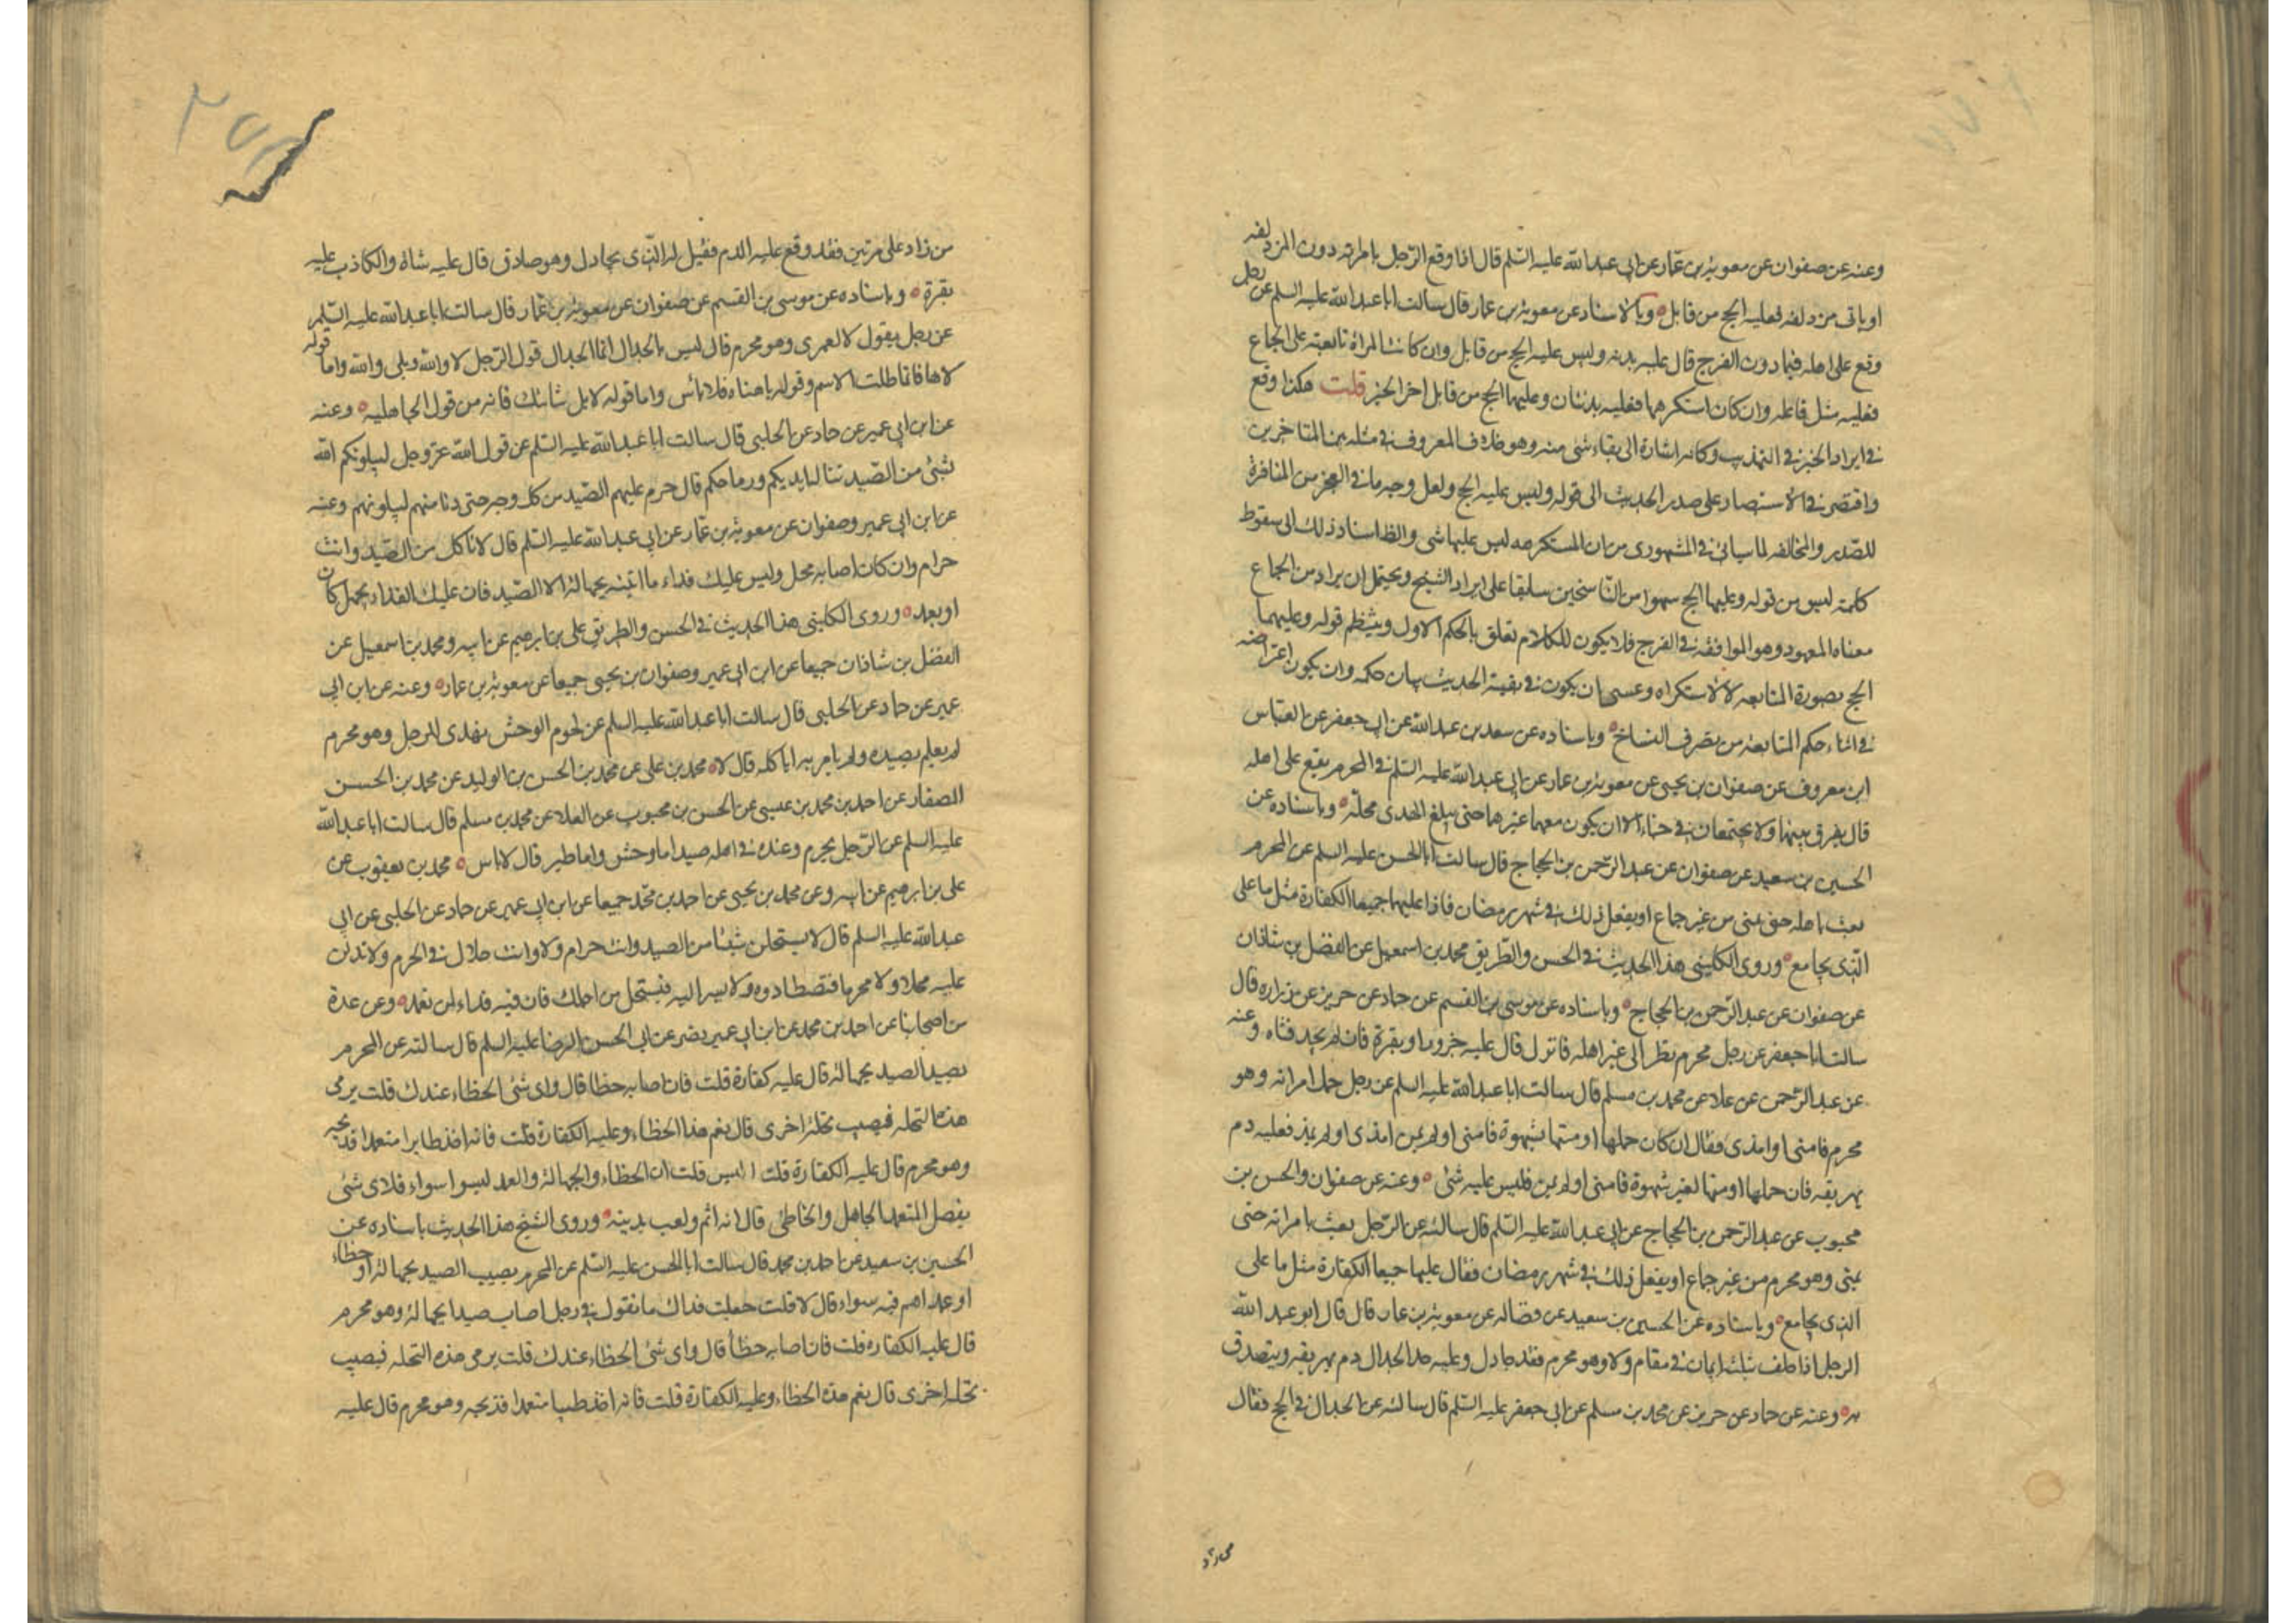 وعنه عن صفوان عن معوية بن عمار عن ابي عبد الله عليه السلم قال اذا وقع الرجل بامراته دون المزدلفه
او ياتى مزدلفه فعليه الحج من قابل وبالاسناد عن معوية بن عمار قال سالت ابا عبد الله عليه السلم عن رجل
وقع على اهله فيما دون الفرج قال عليه بدنه وليس عليه الحج من قابل وان كانت المراة تابعته على الجماع
فعليه مثل ما عليه وان كان استكرهها فعليه بدنتان وعليهما الحج من قابل اخر الخبر قلت هكذا وقع
في ايراد الخبر في التهذيب وكانه اشارة الى بقاء شئ منه وهو خلاف المعروف في مثله بين المتاخرين
واقتصر في الاستبصار على صدر الحديث الى قوله وليس عليه الحج ولعل وجه ما في العجز من المنافرة
للصدر والمخالفه لما سياتى في المشهورى من ان المستكرهه ليس عليها شى والظ اسناد ذلك الى سقوط
كلمة ليس من قوله وعليهما الحج سهوا من الناسخين سابقا على ايراد الشيخ ويحتمل ان يراد من الجماع
معناه المعهود وهو المواقعه في الفرج فلا يكون للكلام تعلق بالحكم الاول وينتظم قوله وعليهما
الحج بصورة المتابعه لا الاستكراه وعسى ان يكون في بقية الحديث بيان حكمه وان يكون اعتراضه
في اثناء حكم المتابعة من تصرف النساخ وباسناده عن سعد بن عبد الله عن ابي جعفر عن العباس
ابن معروف عن صفوان بن يحيى عن معوية بن عمار عن ابي عبد الله عليه السلم في المحرم يقع على اهله
قال يفرق بينهما ولا يجتمعان في خباء الا ان يكون معهما غيرهما حتى يبلغ الهدى محله وباسناده عن
الحسين بن سعيد عن صفوان عن عبد الرحمن بن الحجاج قال سالت ابا الحسن عليه السلم عن المحرم
يعبث باهله حتى يمنى من غير جماع او يفعل ذلك في شهر رمضان ماذا عليهما جميعا الكفارة مثل ما على
الذى يجامع وروى الكليني هذا الحديث في الحسن والطريق محمد بن اسمعيل عن الفضل بن شاذان
عن صفوان عن عبد الرحمن بن الحجاج وباسناده عن موسى بن القسم عن حماد عن حريز عن زراره قال
سالت ابا جعفر عن رجل محرم نظر الى غير اهله فانزل قال عليه جزور او بقرة فان لم يجد فشاه وعنه
عن عبد الرحمن عن علاء عن محمد بن مسلم قال سالت ابا عبد الله عليه السلم عن رجل حمل امراته وهو
محرم فامنى او امذى فقال ان كان حملها او مسها بشهوة فامنى او لم يمن امذى او لم يمذ فعليه دم
يهريقه فان حملها او مسها لغير شهوة فامنى او لم يمن فليس عليه شئ وعنه عن صفوان والحسن بن
محبوب عن عبد الرحمن بن الحجاج عن ابي عبد الله عليه السلم قال سالته عن الرجل يعبث بامراته حتى
يمنى وهو محرم من غير جماع او يفعل ذلك في شهر رمضان فقال عليهما جميعا الكفارة مثل ما على
الذى يجامع وباسناده عن الحسين بن سعيد عن فضاله عن معوية بن عمار قال قال ابو عبد الله
الرجل اذا حلف بثلث ايمان في مقام ولاء وهو محرم فقد جادل وعليه حد الجدال دم يهريقه ويتصدق
به وعنه عن حماد عن حريز عن محمد بن مسلم عن ابي جعفر عليه السلم قال سالته عن الجدال في الحج فقال
٢٧٨
من زاد على مرتين فقد وقع عليه الدم فقيل له الذى يجادل وهو صادق قال عليه شاة والكاذب عليه
بقرة وباسناده عن موسى بن القسم عن صفوان عن معوية بن عمار قال سالت ابا عبد الله عليه السلم
عن رجل يقول لا لعمرى وهو محرم قال ليس بالجدال انما الجدال قول الرجل لا والله وبلى والله واما قوله
لاها فانما طلب الاسم وقوله ياهناه فلا باس واما قوله لا بل شانئك فانه من قول الجاهلية وعنه
عن ابن ابي عمير عن حماد عن الحلبى قال سالت ابا عبد الله عليه السلم عن قول الله عز وجل ليبلونكم الله
بشئ من الصيد تناله ايديكم ورماحكم قال حرم عليهم الصيد من كل وجه حتى دنا منهم ليبلونهم وعنه
عن ابن ابي عمير وصفوان عن معوية بن عمار عن ابي عبد الله عليه السلم قال لا تاكل من الصيد وانت
حرام وان كان اصابه محل وليس عليك فداء ما اتيته بجهالة الا الصيد فان عليك الفداء بجهل كان
او بعمد وروى الكليني هذا الحديث في الحسن والطريق على بن ابرهيم عن ابيه ومحمد بن اسمعيل عن
الفضل بن شاذان جميعا عن ابن ابي عمير وصفوان بن يحيى جميعا عن معوية بن عمار وعنه عن ابن ابي
عمير عن حماد عن الحلبى قال سالت ابا عبد الله عليه السلم عن لحوم الوحش تهدى للرجل وهو محرم
لم يعلم بصيده ولم يامر به اياكله قال لا محمد بن على عن محمد بن الحسن بن الوليد عن محمد بن الحسن
الصفار عن احمد بن محمد بن عيسى عن الحسن بن محبوب عن العلا عن محمد بن مسلم قال سالت ابا عبد الله
عليه السلم عن الرجل يحرم وعنده في اهله صيد اما وحش واما طير قال لا باس محمد بن يعقوب عن
على بن ابرهيم عن ابيه وعن محمد بن يحيى عن احمد بن محمد جميعا عن ابن ابي عمير عن حماد عن الحلبى عن ابي
عبد الله عليه السلم قال لا يستحلن شيئا من الصيد وانت حرام ولا وانت حلال في الحرم ولا تدلن
عليه محلا ولا محرما فتصطادوه ولا يشر اليه فيستحل من اجلك فان فيه فداء لمن تعمد وعن عدة
من اصحابنا عن احمد بن محمد عن ابن ابي عمير بصر عن ابي الحسن الرضا عليه السلم قال سالته عن المحرم
يصيد الصيد بجهالة قال عليه كفارة قلت فان اصابه خطا قال واى شئ الخطاء عندك قلت يرمى
هذه النخله فيصيب نخلة اخرى قال نعم هذا الخطاء وعليه الكفارة قلت فانه اخذ طايرا متعمدا فذبحه
وهو محرم قال عليه الكفارة قلت اليس قلت ان الخطاء والجهالة والعمد ليسوا سواء فلاى شئ
يفصل المتعمد الجاهل والخاطئ قال انه اثم ولعب بدينه وروى الشيخ هذا الحديث باسناده عن
الحسين بن سعيد عن احمد بن محمد قال سالت ابا الحسن عليه السلم عن المحرم يصيب الصيد بجهالة او خطاء
او عمد اهم فيه سواء قال لا قلت جعلت فداك ما تقول في رجل اصاب صيدا بجهالة وهو محرم
قال عليه الكفاره قلت فان اصابه خطأ قال واى شئ الخطاء عندك قلت يرمى هذه النخله فيصيب
نخله اخرى قال نعم هذه الخطاء وعليه الكفارة قلت فانه اخذ ظبيا متعمدا فذبحه وهو محرم قال عليه